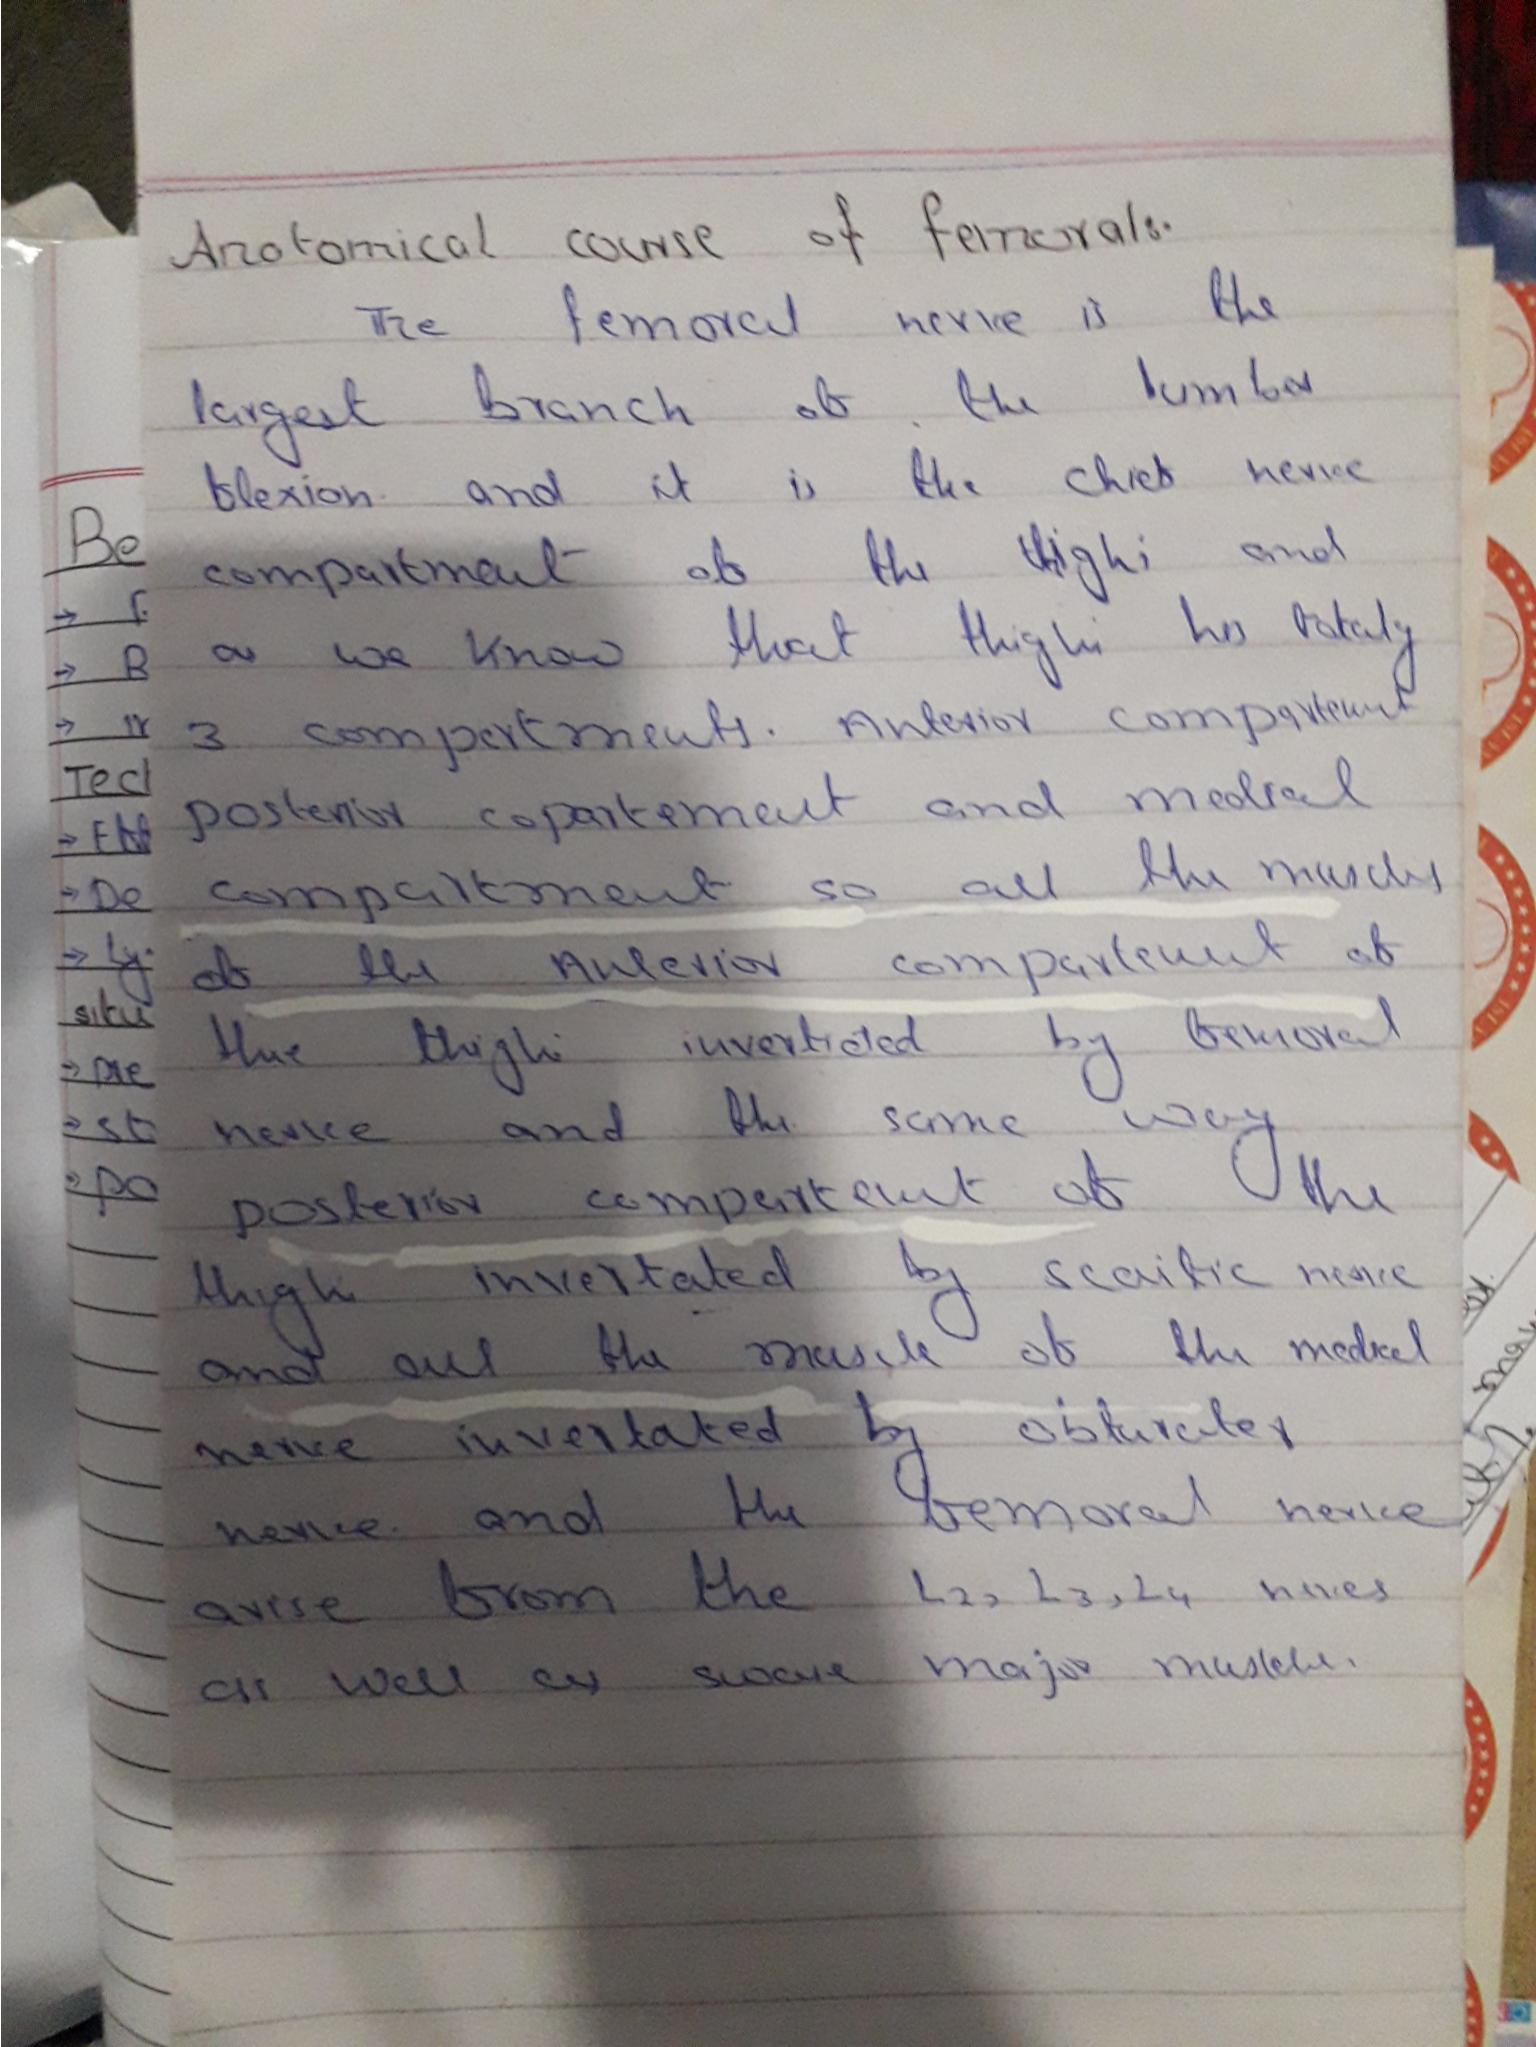 Anotomical course of femorals.
The femoral nerve is the
largest branch of the lumbar
flexion. and it is the chief nerve
compartment of the thigh and
as we know that thigh has totaly
3 compartments. Anterior compartement
posterior copartement and medical
compartment so all the muscles
of the Anterior compartement of
thue thigh inverticted by femoral
nerve and the same way
posterior compartement of the
thigh invertated by scaitic nerve
and all the muscle of the medical
nerve invertated by obturater
nerve. and the femoral nerve
arise from the L2, L3, L4 nerves
as well as major muscle.
Be
→ B
Tecl
→ De
→ Ly.
situ
→ pre
→ st
→ po